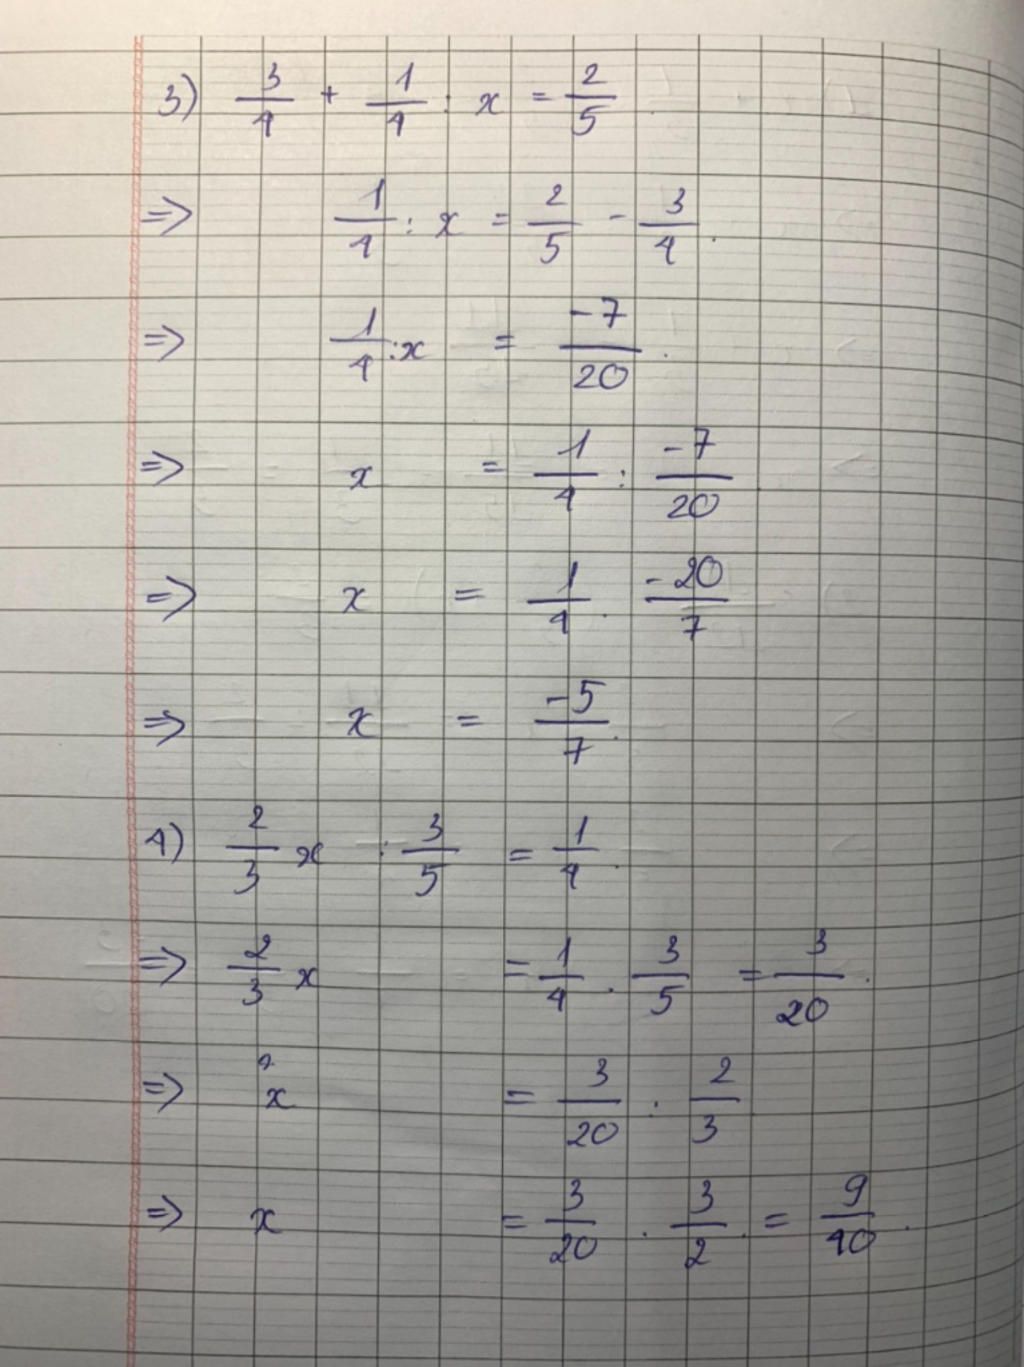 3) 3/4 + 1/4 : x = 2/5
=> 1/4 : x = 2/5 - 3/4.
=> 1/4 : x = -7/20.
=> x = 1/4 : -7/20.
=> x = 1/4 . -20/7
=> x = -5/7.
4) 2/3 x : 3/5 = 1/4.
=> 2/3 x = 1/4 . 3/5 = 3/20.
=> x = 3/20 : 2/3
=> x = 3/20 . 3/2 = 9/40.